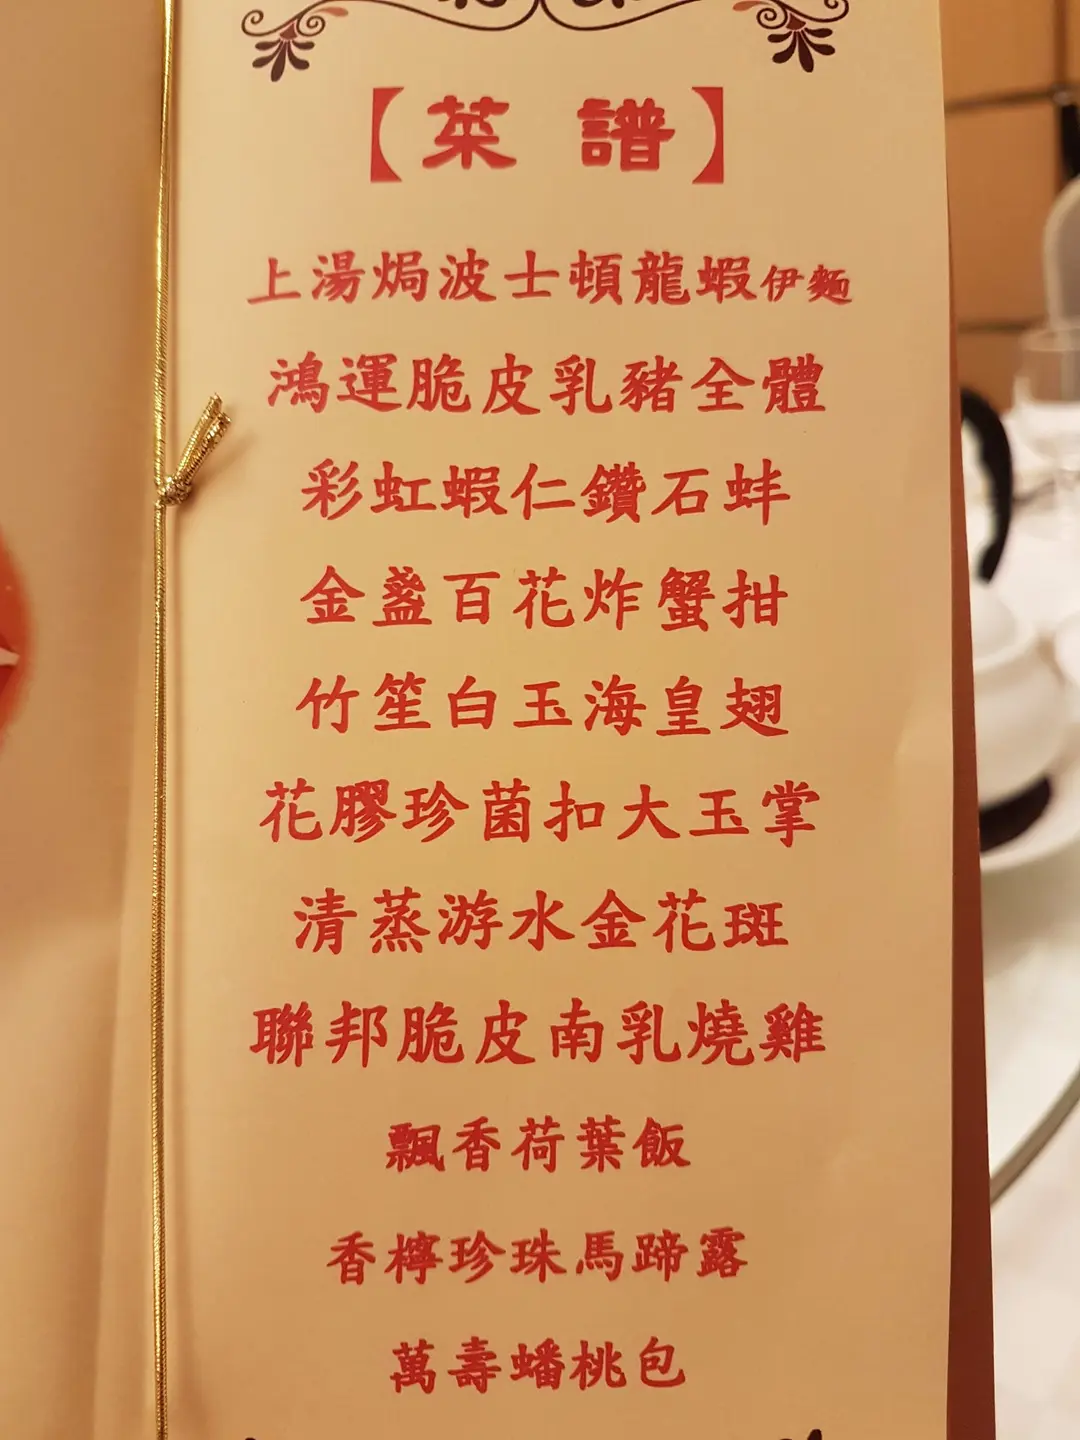 【菜譜】
上湯焗波士頓龍蝦伊麵
鴻運脆皮乳豬全體
彩虹蝦仁鑽石蚌
金盞百花炸蟹拑
竹笙白玉海皇翅
花膠珍菌扣大玉掌
清蒸游水金花斑
聯邦脆皮南乳燒雞
飄香荷葉飯
香檸珍珠馬蹄露
萬壽蟠桃包